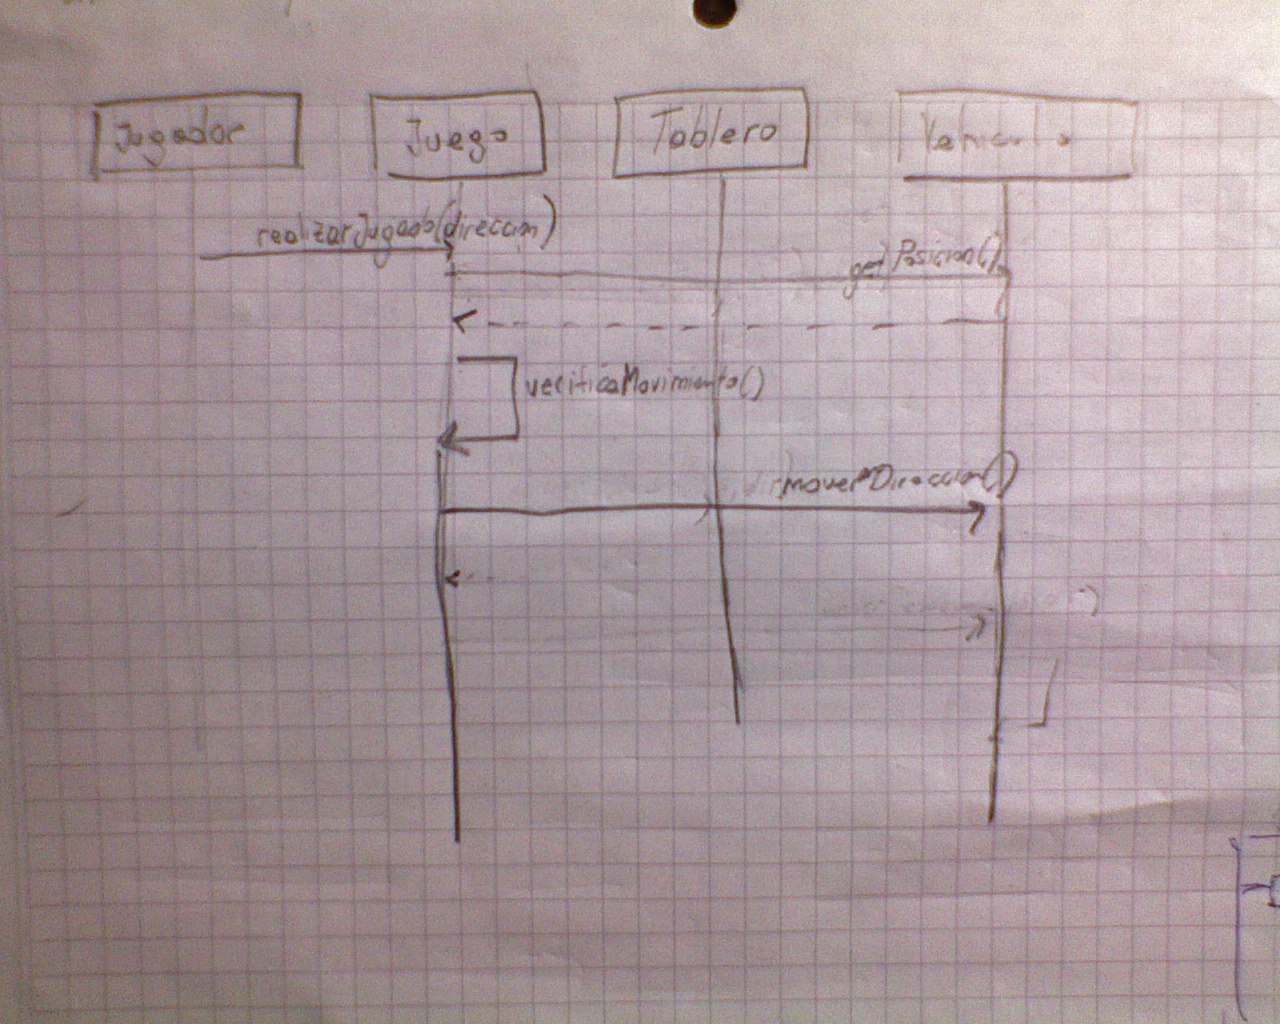 Jugador
Juego
Tablero
Vehiculo
realizarJugada(direccion)
getPosicion()
verificaMovimiento()
moverDireccion()